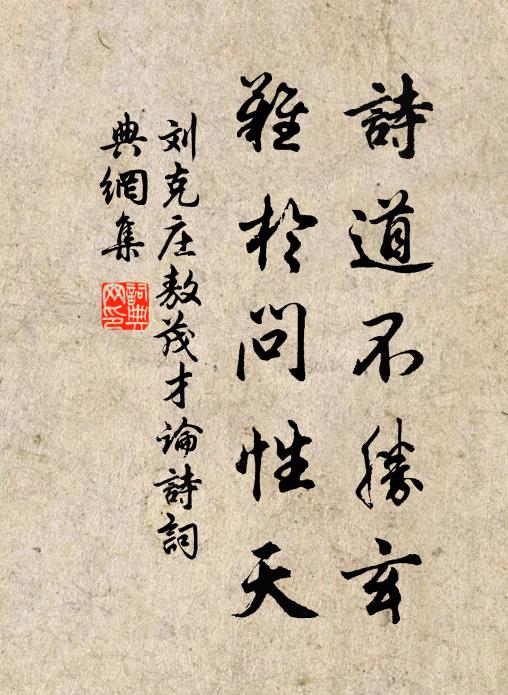 詩道不勝玄
難於問性天
刘克庄敖茂才論詩詞
典網集
詞典
网印